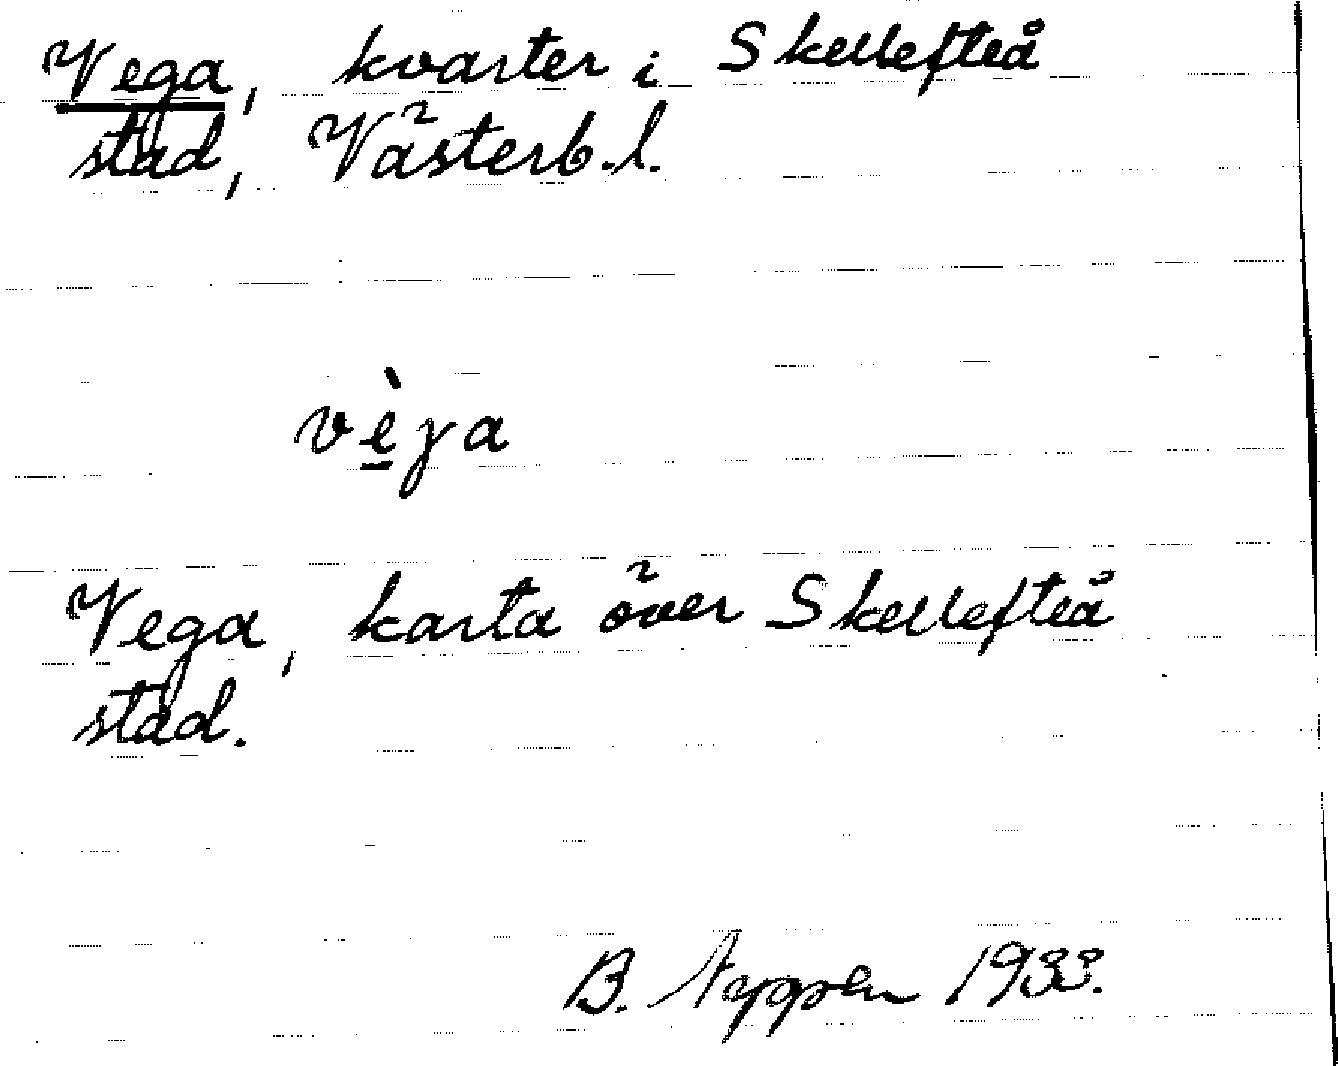 Vega, kvarter i Skellefteå
stad, Västerb.l.
vèga
Vega, karta över Skellefteå
stad.
B. 1933.